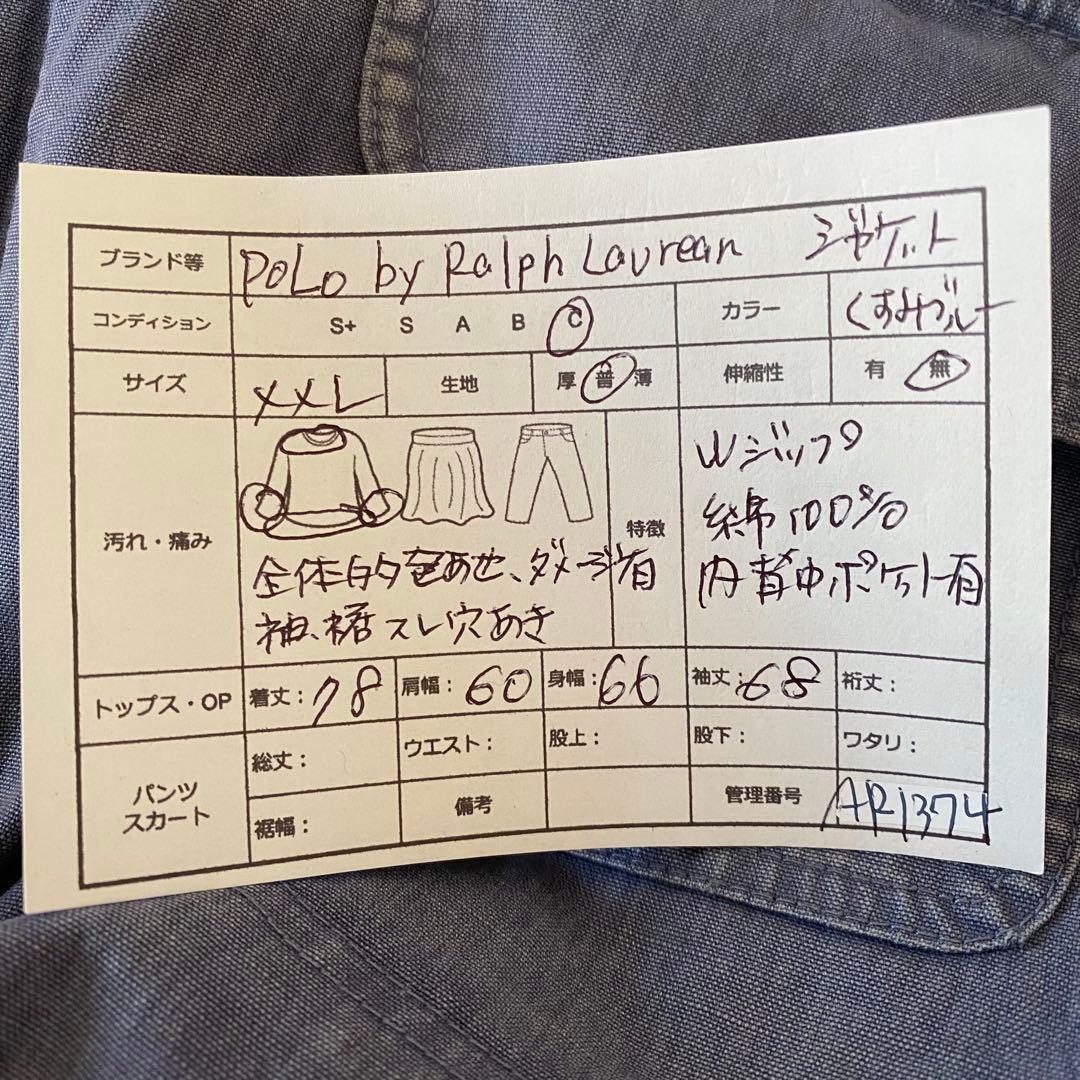 ブランド等 POLO by Ralph Laurean ジャケット
コンディション S+ S A B C カラー くすみブルー
サイズ XXL 生地 厚 普 薄 伸縮性 有 無
汚れ・痛み
全体的色あせ、ダメージ有
袖、裾スレ穴あき
特徴
Wジップ
綿100%
内背中ポケット有
トップス・OP 着丈:78 肩幅:60 身幅:66 袖丈:68 裄丈:
パンツ
スカート
総丈: ウエスト: 股上: 股下: ワタリ:
裾幅: 備考 管理番号 AR1374